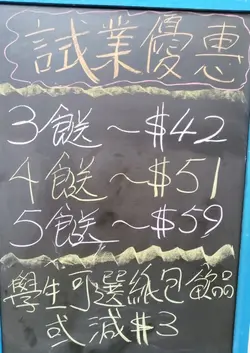 試業優惠
3餸～$42
4餸～$51
5餸～$59
學生可選紙包飲品
或減$3